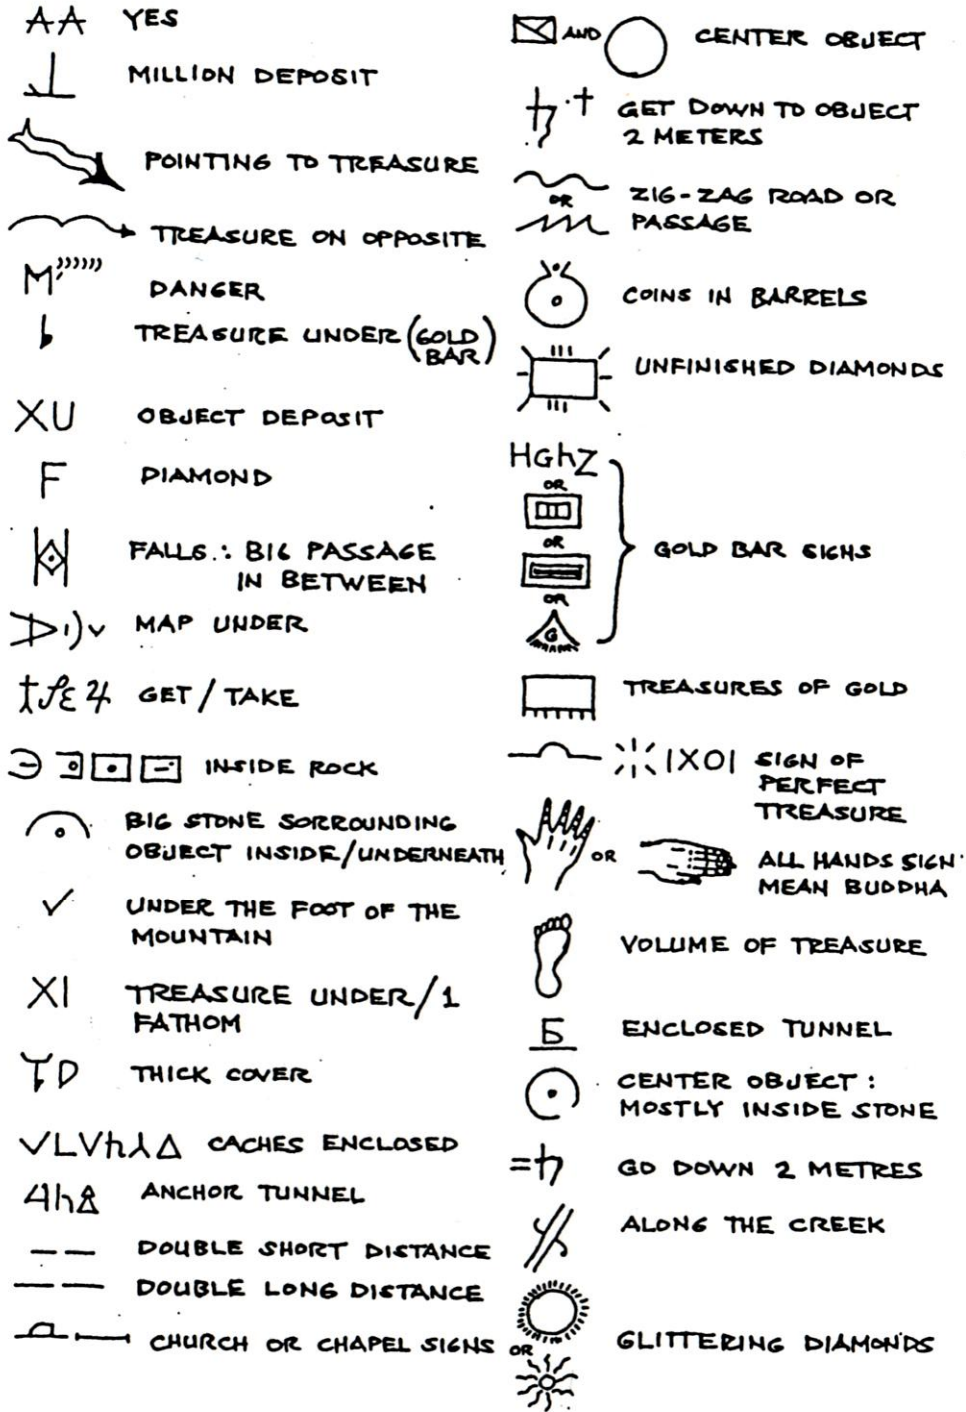 AA YES
MILLION DEPOSIT
POINTING TO TREASURE
TREASURE ON OPPOSITE
M DANGER
TREASURE UNDER (GOLD
BAR)
XU OBJECT DEPOSIT
F DIAMOND
FALLS.: BIG PASSAGE
IN BETWEEN
MAP UNDER
GET / TAKE
INSIDE ROCK
BIG STONE SORROUNDING
OBJECT INSIDE/UNDERNEATH
✓ UNDER THE FOOT OF THE
MOUNTAIN
XI TREASURE UNDER/1
FATHOM
TD THICK COVER
VLVhλΔ CACHES ENCLOSED
ANCHOR TUNNEL
— — DOUBLE SHORT DISTANCE
— — DOUBLE LONG DISTANCE
CHURCH OR CHAPEL SIGNS
AND CENTER OBJECT
GET DOWN TO OBJECT
2 METERS
OR ZIG-ZAG ROAD OR
PASSAGE
COINS IN BARRELS
UNFINISHED DIAMONDS
HGhZ
OR
OR
GOLD BAR SIGHS
OR
G
TREASURES OF GOLD
IXOI SIGN OF
PERFECT
TREASURE
OR ALL HANDS SIGN
MEAN BUDDHA
VOLUME OF TREASURE
ENCLOSED TUNNEL
CENTER OBJECT:
MOSTLY INSIDE STONE
GO DOWN 2 METRES
ALONG THE CREEK
OR GLITTERING DIAMONDS